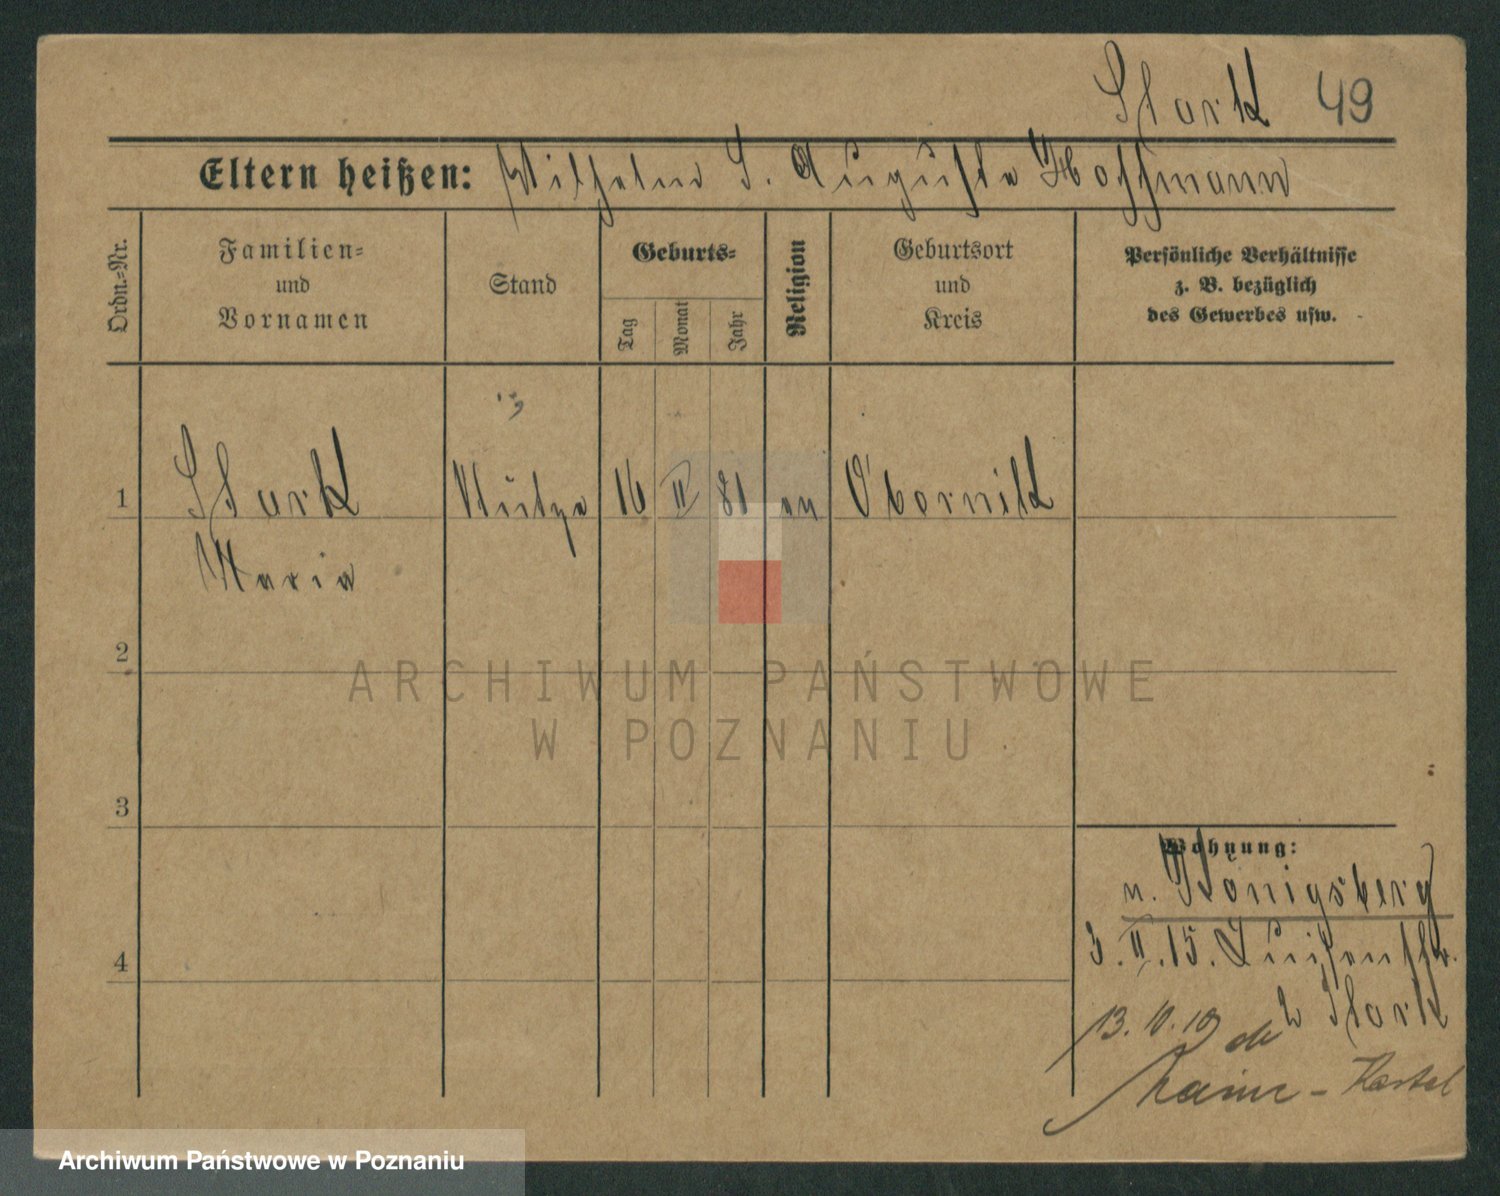 Stark 49
Eltern heißen: Wilhelm S. Auguste Hoffmann
Ordn.-Nr.
Familien-
und
Vornamen
Stand
Geburts-
Tag
Monat
Jahr
Religion
Geburtsort
und
Kreis
Persönliche Verhältnisse
z. B. bezüglich
des Gewerbes usw.
1 Stark Stütze 16 II 81 ev Obornik
Maria
2
3
4
Wohnung:
n. Königsberg
3.II.15. Luisenstr.
2 Stark
13.10.19
Mainz - Kastel
ARCHIWUM PAŃSTWOWE
W POZNANIU
Archiwum Państwowe w Poznaniu